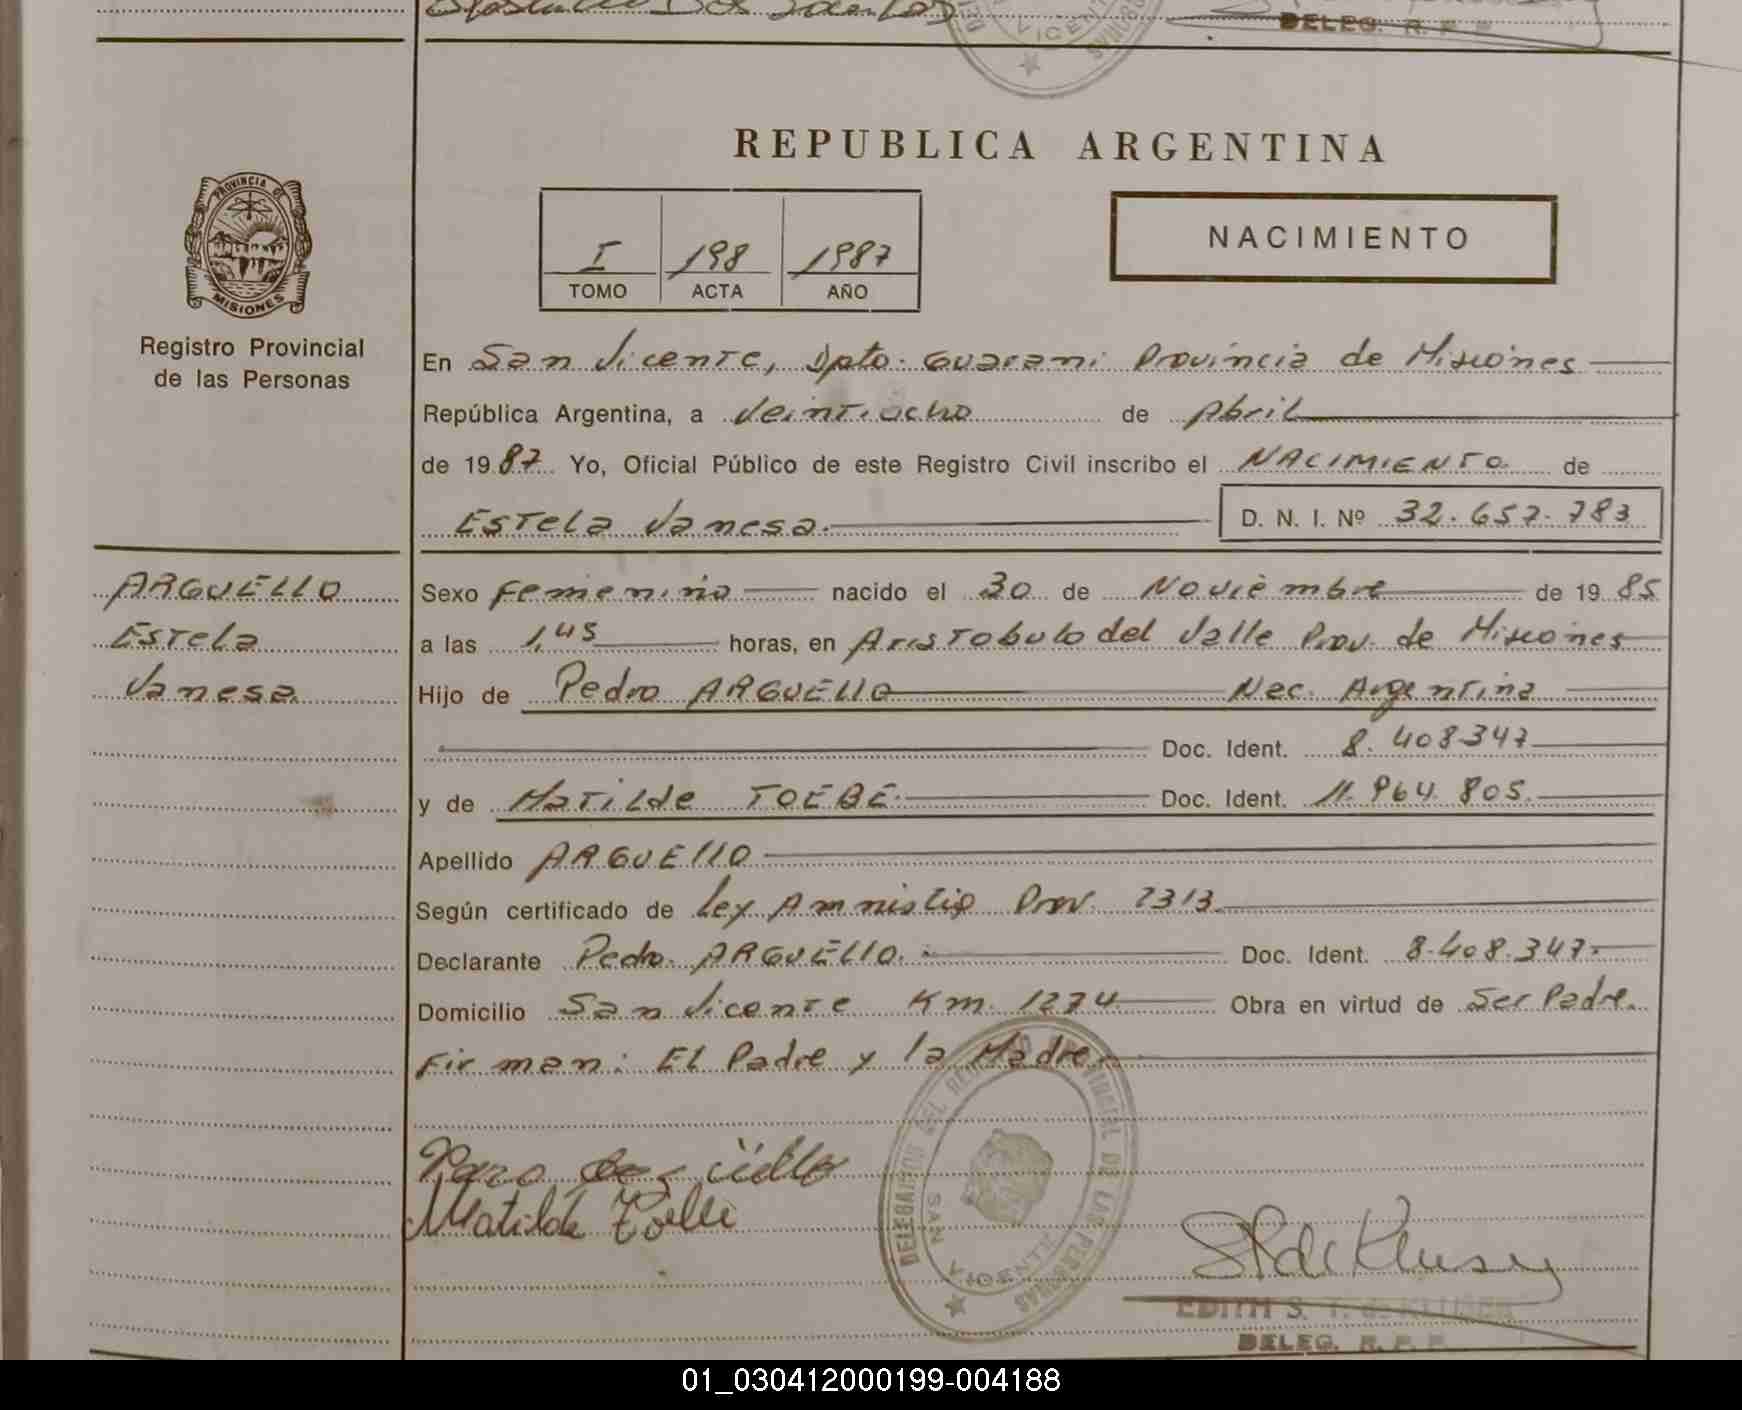 DELEG. R. P. P
REPUBLICA ARGENTINA
PROVINCIA DE
MISIONES
Registro Provincial
de las Personas
I 198 1987
TOMO ACTA AÑO
NACIMIENTO
En San Vicente, Dpto. Guarani Provincia de Misiones
República Argentina, a Veintiocho de Abril
de 1987 Yo, Oficial Público de este Registro Civil inscribo el NACIMIENTO de
Estela Vanesa. D. N. I. Nº 32.657.783
ARGUELLO
Estela
Vanesa
Sexo Femenino nacido el 30 de Noviembre de 1985
a las 1,45 horas, en Aristobulo del Valle Prov. de Misiones
Hijo de Pedro ARGUELLO Nac. Argentina
Doc. Ident. 8.408347
y de Matilde TOEBE Doc. Ident. 11.964.805.
Apellido ARGUELLO
Según certificado de Ley Amnistia Prov. 2313
Declarante Pedro ARGUELLO. Doc. Ident. 8.408.347.
Domicilio San Vicente Km. 1274 Obra en virtud de Ser Padre.
Firman: El Padre y la Madre
Matilde
DELEGACION DEL REGISTRO PROVINCIAL DE LAS PERSONAS
SAN VICENTE
EDITH S. T. de KLUSER
DELEG. R. P. P.
01_030412000199-004188